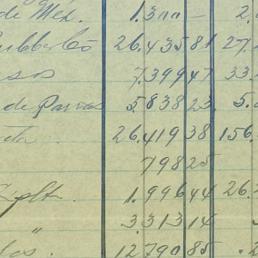 de Mex. 1.300 — 2.
Rubber Co 26.435 81 27.
sos 7.399 47 33.
de Parras 5.838 23 5.
26.419 38 156.
798 25
Explt. 1.996 44 26.
" 3.313 14
los. 12.790 85